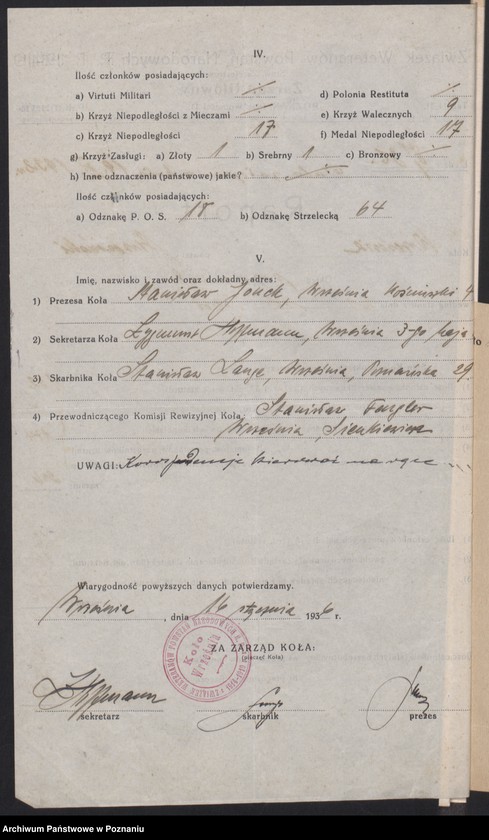 IV.
Ilość członków posiadających:
a) Virtuti Militari
d) Polonia Restituta
b) Krzyż Niepodległości z Mieczami
e) Krzyż Walecznych 9
c) Krzyż Niepodległości 17
f) Medal Niepodległości 17
g) Krzyż Zasługi: a) Złoty 1 b) Srebrny 1 c) Bronzowy
h) Inne odznaczenia (państwowe) jakie?
Ilość członków posiadających:
a) Odznakę P. O. S. 18 b) Odznakę Strzelecką 64
V.
Imię, nazwisko i zawód oraz dokładny adres:
1) Prezesa Koła Stanisław Września
2) Sekretarza Koła Zygmunt Września 3-go Maja
3) Skarbnika Koła Stanisław Lange, Września, Poznańska 29.
4) Przewodniczącego Komisji Rewizyjnej Koła: Stanisław
Września, Sienkiewicza
UWAGI: Korespondencję kierować na ręce
Wiarygodność powyższych danych potwierdzamy.
Września, dnia 16 stycznia 1936 r.
Koło
Września
ZA ZARZĄD KOŁA:
(pieczęć Koła)
sekretarz skarbnik prezes
Archiwum Państwowe w Poznaniu